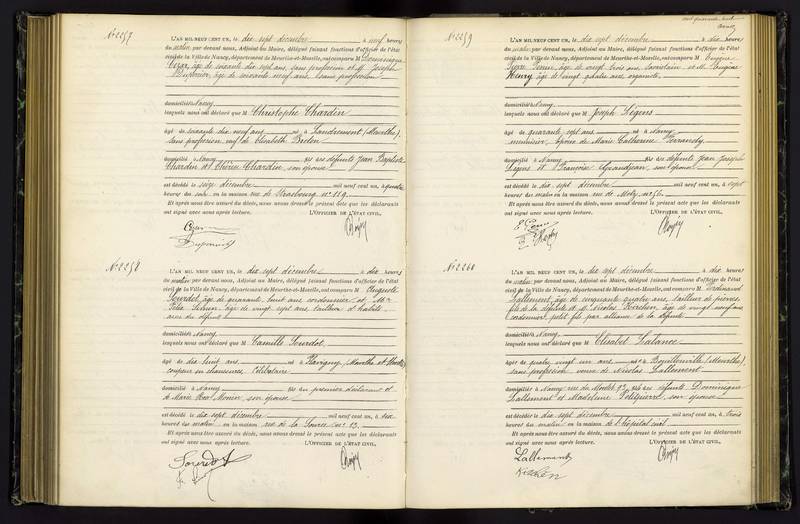 N° 2257
L'AN MIL NEUF CENT UN, le dix sept décembre à neuf heures
du matin, par devant nous, Adjoint au Maire, délégué faisant fonctions d'officier de l'état
civil de la Ville de Nancy, département de Meurthe-et-Moselle, ont comparu M Dominique
âgé de soixante dix sept ans, sans profession et M. Joseph
âgé de soixante neuf ans, sans profession
domiciliés à Nancy
lesquels nous ont déclaré que M Christophe Chardin
âgé de soixante dix neuf ans né à (Meurthe),
sans profession, veuf de Elisabeth
domicilié à Nancy fils des défunts Jean Baptiste
Chardin et Chardin, son épouse
est décédé le seize décembre mil neuf cent un, à quatre
heures du soir, en la maison rue de Strasbourg n° 119
Et après nous être assuré du décès, nous avons dressé le présent acte que les déclarants
ont signé avec nous après lecture. L'OFFICIER DE L'ÉTAT CIVIL,
N° 2258
L'AN MIL NEUF CENT UN, le dix sept décembre à dix heures
du matin, par devant nous, Adjoint au Maire, délégué faisant fonctions d'officier de l'état
civil de la Ville de Nancy, département de Meurthe-et-Moselle, ont comparu M Auguste
Sourdot, âgé de quarante huit ans, cordonnier et M.
âgé de vingt sept ans, tailleur d'habits,
du défunt
domiciliés à Nancy
lesquels nous ont déclaré que M Camille Sourdot,
âgé de dix huit ans né à Flavigny, (Meurthe et Moselle)
coupeur en chaussures, célibataire
domicilié à Nancy fils du premier déclarant et
de Marie son épouse
est décédé le dix sept décembre mil neuf cent un, à
heures du matin en la maison rue de la Source n° 13
Et après nous être assuré du décès, nous avons dressé le présent acte que les déclarants
ont signé avec nous après lecture. L'OFFICIER DE L'ÉTAT CIVIL,
Sourdot
N° 2259
L'AN MIL NEUF CENT UN, le dix sept décembre à dix heures
du matin, par devant nous, Adjoint au Maire, délégué faisant fonctions d'officier de l'état
civil de la Ville de Nancy, département de Meurthe-et-Moselle, ont comparu M Eugène
âgé de vingt trois ans, sacristain et M. Eugène
Henry âgé de vingt quatre ans, organiste,
domiciliés à Nancy
lesquels nous ont déclaré que M Joseph
âgé de quarante sept ans né à Nancy
menuisier, époux de Marie Catherine
domicilié à Nancy fils des défunts Jean Joseph
et Françoise Grandjean, son épouse
est décédé le dix sept décembre mil neuf cent un, à sept
heures du matin en la maison rue de Metz, n° 52
Et après nous être assuré du décès, nous avons dressé le présent acte que les déclarants
ont signé avec nous après lecture. L'OFFICIER DE L'ÉTAT CIVIL,
N° 2260
L'AN MIL NEUF CENT UN, le dix sept décembre à dix heures
du matin, par devant nous, Adjoint au Maire, délégué faisant fonctions d'officier de l'état
civil de la Ville de Nancy, département de Meurthe-et-Moselle, ont comparu M Ferdinand
Lallement, âgé de cinquante quatre ans, tailleur de pierres,
fils de la défunte et M. Nicolas âgé de vingt neuf ans
cordonnier, petit fils par alliance de la défunte
domiciliés à Nancy
lesquels nous ont déclaré que M Elisabet Salance
âgée de quatre vingt un ans née à Bouillonville (Meurthe),
sans profession veuve de Nicolas Lallement
domiciliée à Nancy rue du fille des défunts Dominique
Lallement et Madeleine son épouse
est décédée le dix sept décembre mil neuf cent un, à trois
heures du matin en la maison de l'hôpital civil
Et après nous être assuré du décès, nous avons dressé le présent acte que les déclarants
ont signé avec nous après lecture. L'OFFICIER DE L'ÉTAT CIVIL,
Lallement